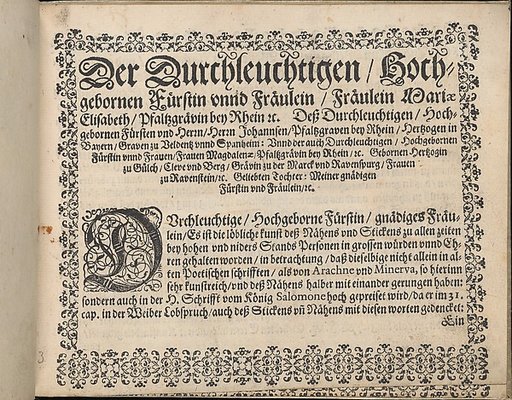 Der Durchleuchtigen / Hoch-
gebornen Fürstin vnnd Fräulein / Fräulein Maria
Elisabeth / Pfaltzgrävin bey Rhein ꝛc. Deß Durchleuchtigen / Hoch-
gebornen Fürsten vnd Herrn / Herrn Johannsen / Pfaltzgraven bey Rhein / Hertzogen in
Bayern / Graven zu Veldentz vnnd Spanheim: Vnnd der auch Durchleuchtigen / Hochgebornen
Fürstin vnnd Frauen / Frauen Magdalenæ / Pfaltzgrävin bey Rhein / ꝛc. Gebornen Hertzogin
zu Gülich / Cleve vnd Berg / Grävin zu der Marck vnd Ravenspurg / Frauen
zu Ravenstein / ꝛc. Geliebten Tochter: Meiner gnädigen
Fürstin vnd Fräulein / ꝛc.
DVrchleuchtige / Hochgeborne Fürstin / gnädiges Fräu-
lein / Es ist die löbliche kunst deß Nähens vnd Stickens zu allen zeiten
bey hohen vnd niders Stands Personen in grossen würden vnnd Eh-
ren gehalten worden / in betrachtung / daß dieselbige nicht allein in al-
ten Poetischen schrifften / als von Arachne vnd Minerva, so hierinn
sehr kunstreich / vnd deß Nähens halber mit einander gerungen haben:
sondern auch in der H. Schrifft vom König Salomone hoch gepreiset wird / da er im 31.
cap. in der Weiber Lobspruch / auch deß Stickens vñ Nähens mit diesen worten gedencket:
Ein
3